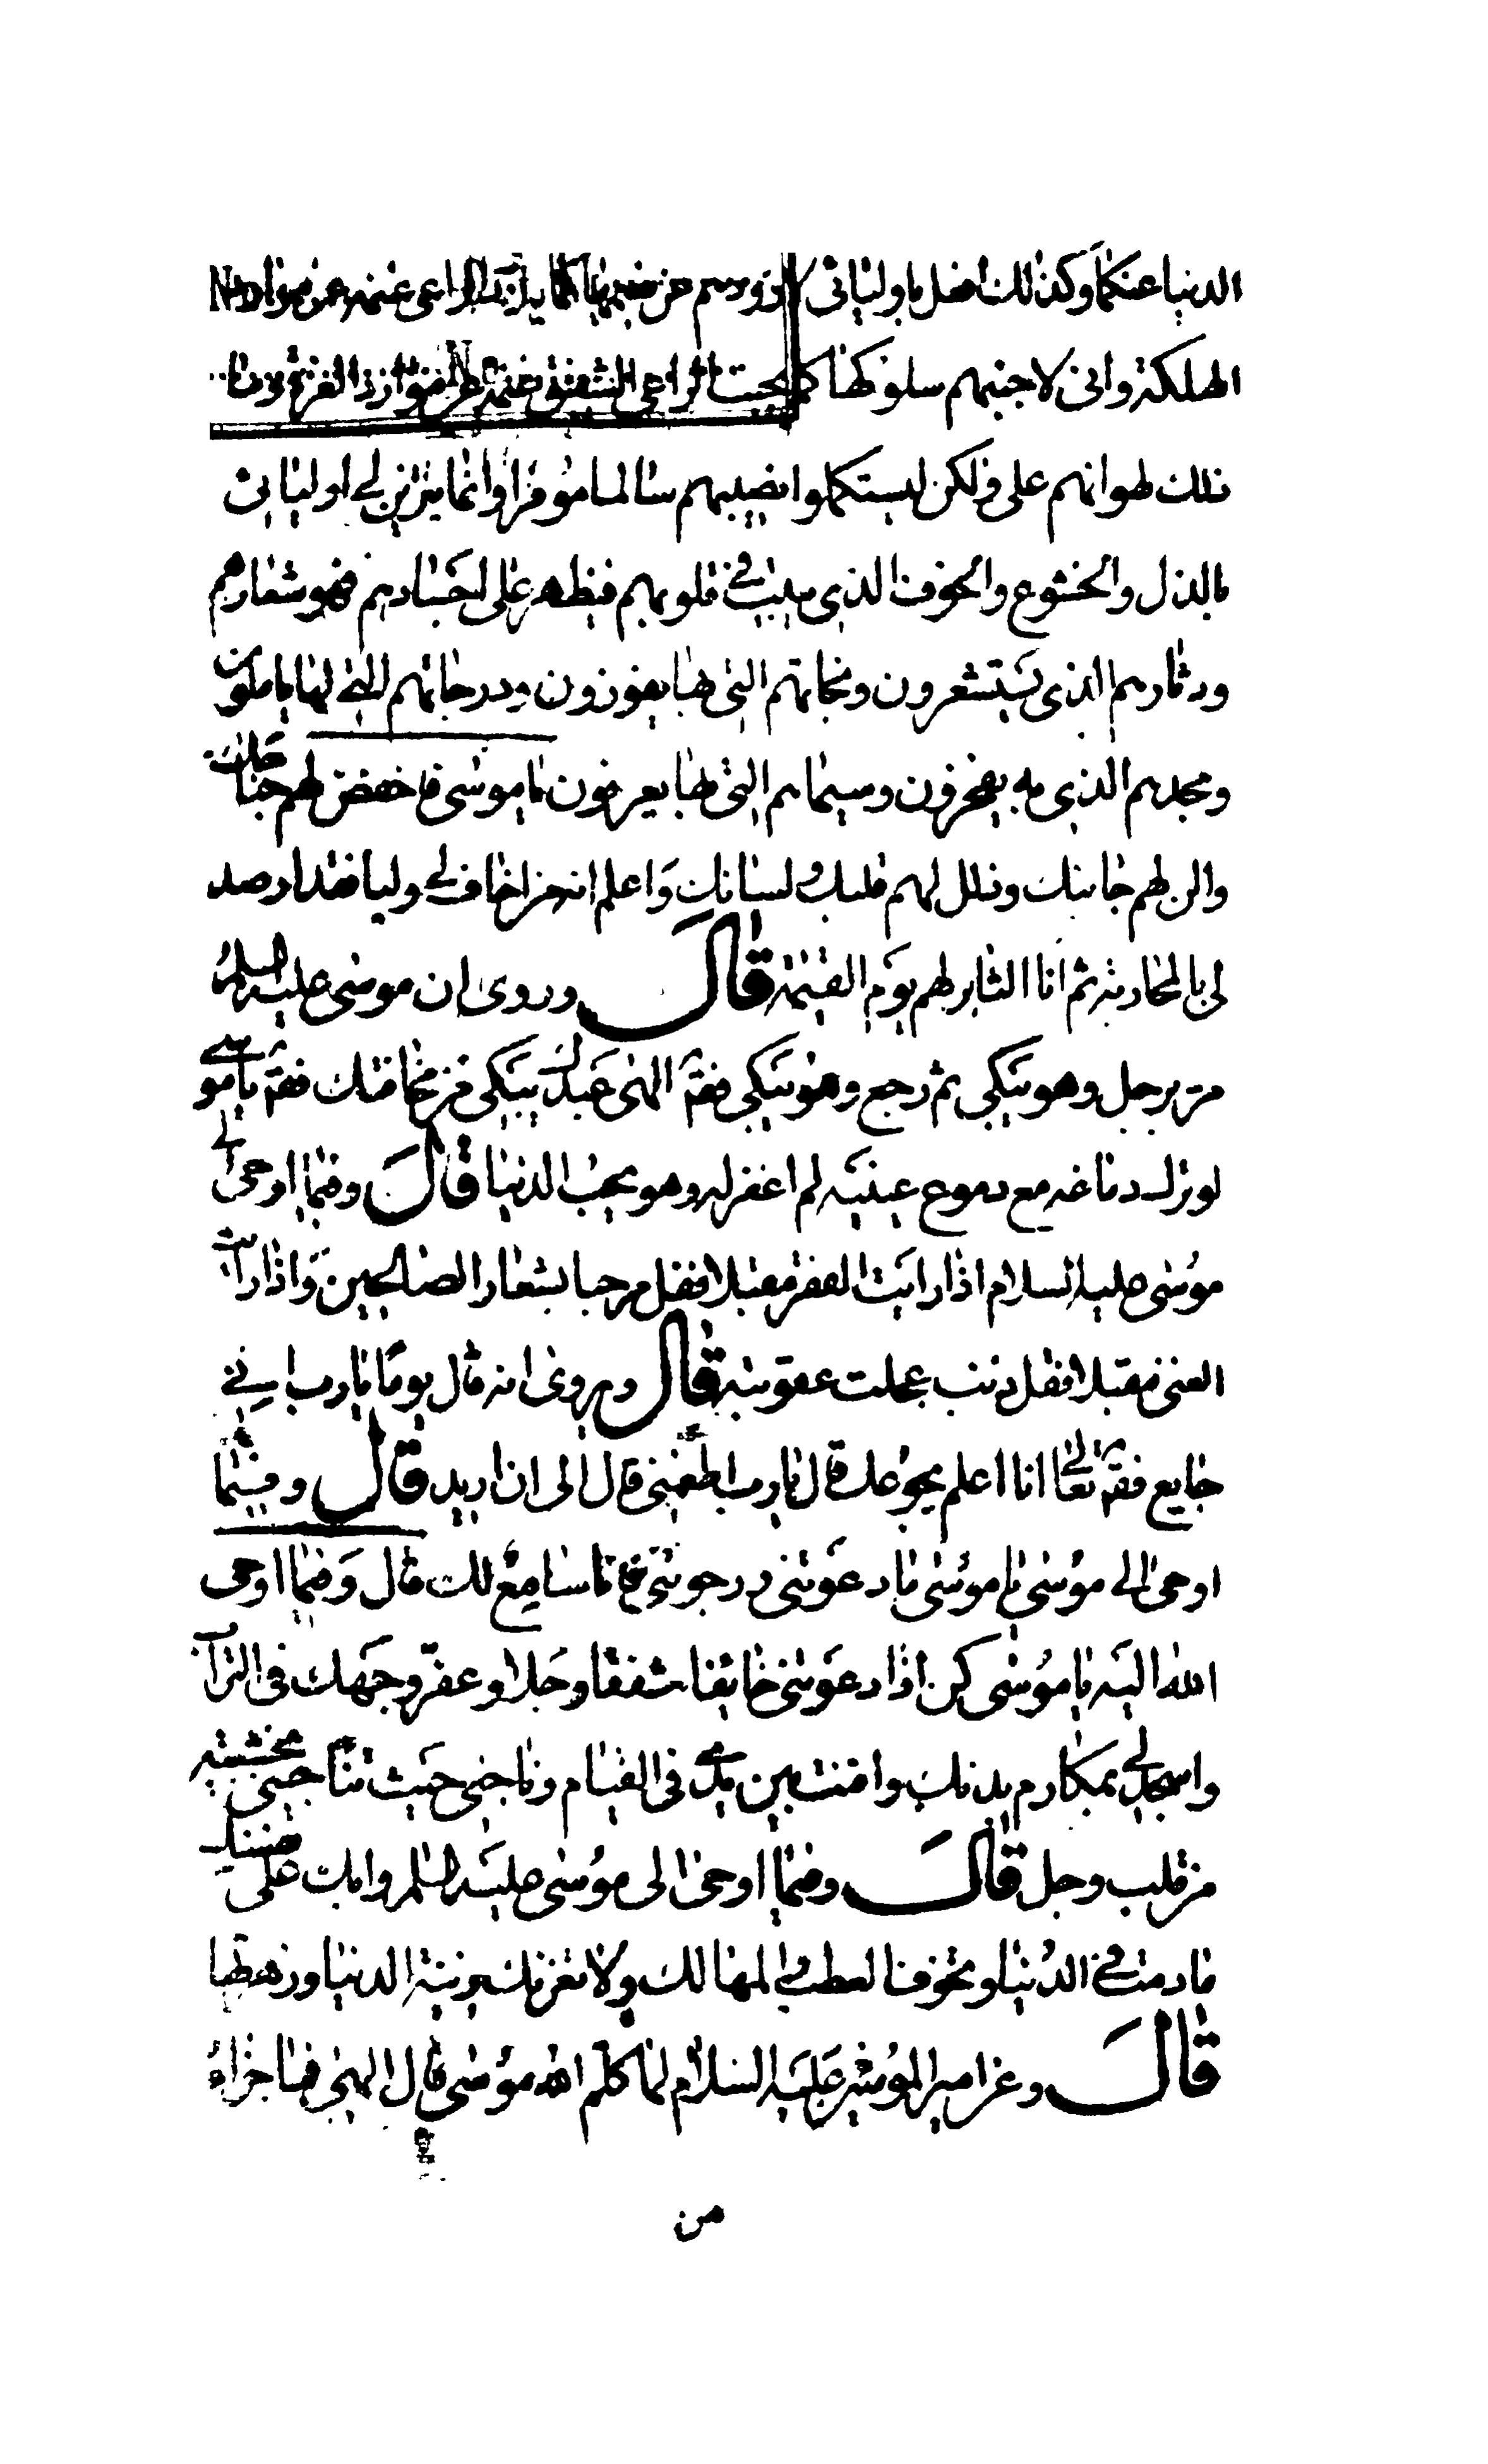 الدنيا عنكما وكذلك افعل باوليائى لازودهم عن نعيمها كما يذود الراعى غنمه عن موارد
الهلكة وانى لاجنبهم سلوكها كما يجنب الراعى الشفيق غنمه عن موارد الغرة وما
ذلك لهوانهم على ولكن ليستكملوا نصيبهم سالما موفرا وانما يتزين لى اوليائى
بالذل والخشوع والخوف الذى يثبت فى قلوبهم فيظهر على اجسادهم فهو شعارهم
ودثارهم الذى يستشعرون ونجاتهم التى بها يفوزون ودرجاتهم التى لها يأملون
ومجدهم الذى به يفخرون وسيماهم التى بها يعرفون يا موسى فاخفض لهم جناحك
والن لهم جانبك وذلل لهم قلبك ولسانك واعلم انه من اخاف لى وليا فقد ارصد
لى بالمحاربة ثم انا الثاير لهم يوم القيمة قال وروى ان موسى عليه السلم
مر برجل وهو يبكى ثم رجع وهو يبكى فقال الهى عبدك يبكى من مخافتك فقال يا موسى
لو نزل دماغه مع دموع عينيه لم اغفر له وهو يحب الدنيا قال وفيما اوحى الى
موسى عليه السلام اذا رايت الفقر مقبلا فقل مرحبا بشعار الصالحين واذا رايت
الغنى مقبلا فقل ذنب عجلت عقوبته قال ويروى انه قال يوما يا رب انى
جايع فقال تعالى انا اعلم بجوعك قال يا رب اطعمنى قال الى ان اريد قال وفيما
اوحى الى موسى يا موسى ما دعوتنى ورجوتنى فانا سامع لك قال وفيما اوحى
الله اليه يا موسى كن اذا دعوتنى خائفا مشفقا وجلا وعفر وجهك فى التراب
واسجد لى بمكارم بدنك واقنت بين يدى فى القيام وناجنى حيث تناجينى بخشية
من قلب وجل قال وفيما اوحى الى موسى عليه السلم وابك على نفسك
ما دمت فى الدنيا وتخوف العطب والمهالك ولا تغرنك زينة الدنيا وزهرتها
قال وعن امير المؤمنين عليه السلام لما كلم الله موسى قال الهى فما جزاء
من